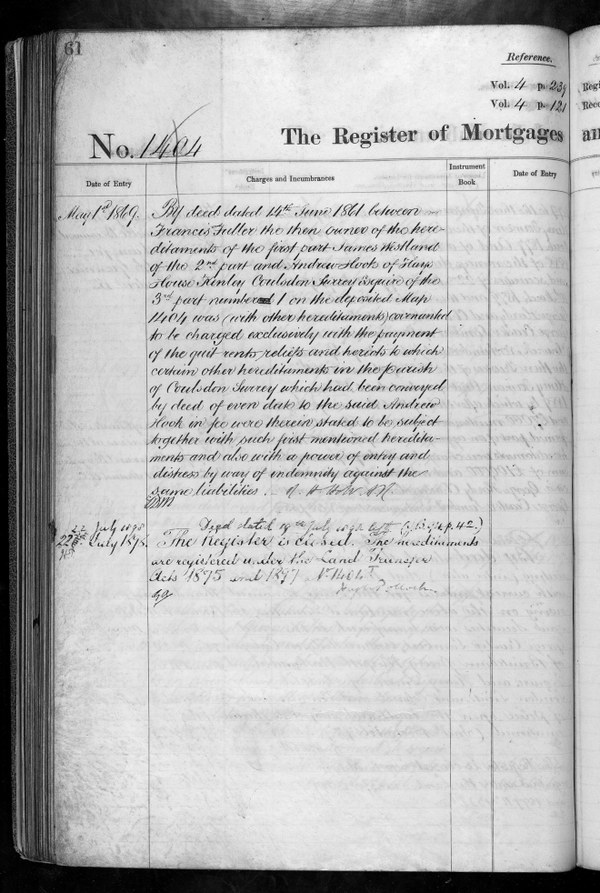 61
Reference.
Vol. 4 p. 239
Vol. 4 p. 121
No. 1404
The Register of Mortgages
Date of Entry
Charges and Incumbrances
Instrument Book
Date of Entry
May 1st 1869.
By deed dated 14th June 1861 between
Francis Fuller the then owner of the here-
ditaments of the first part James Westland
of the 2nd part and Andrew Hook of Hays
House Kenley Coulsdon Surrey Esquire of the
3rd part numbered 1 on the deposited Map
1404 was (with other hereditaments) covenanted
to be charged exclusively with the payment
of the quit rents reliefs and heriots to which
certain other hereditaments in the parish
of Coulsdon Surrey which had been conveyed
by deed of even date to the said Andrew
Hook in fee were therein stated to be subject
together with such first mentioned heredita-
ments and also with a power of entry and
distress by way of indemnity against the
same liabilities.
July
Deed dated July
July
The Register is closed. The hereditaments
are registered under the Land Transfer
Acts 1875 and 1897 No. 1404
an